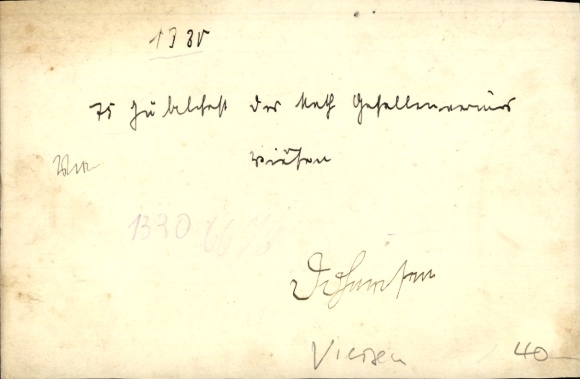 1330
75 Jubelfest des Kath Gesellenvereins
Viersen
1330
Viersen 40